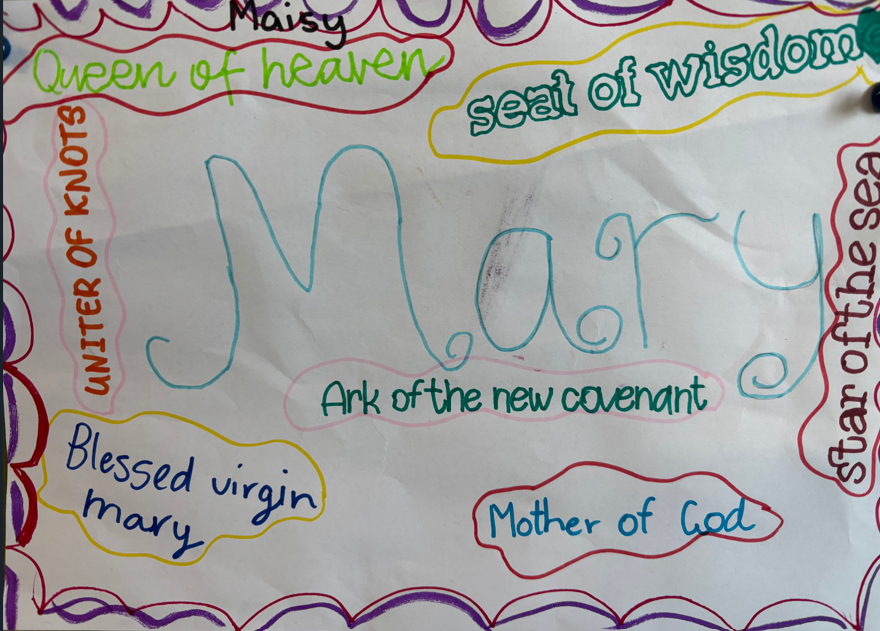 Maisy
Queen of heaven
seat of wisdom
UNITER OF KNOTS
Mary
star of the sea
Ark of the new covenant
Blessed virgin
mary
Mother of God